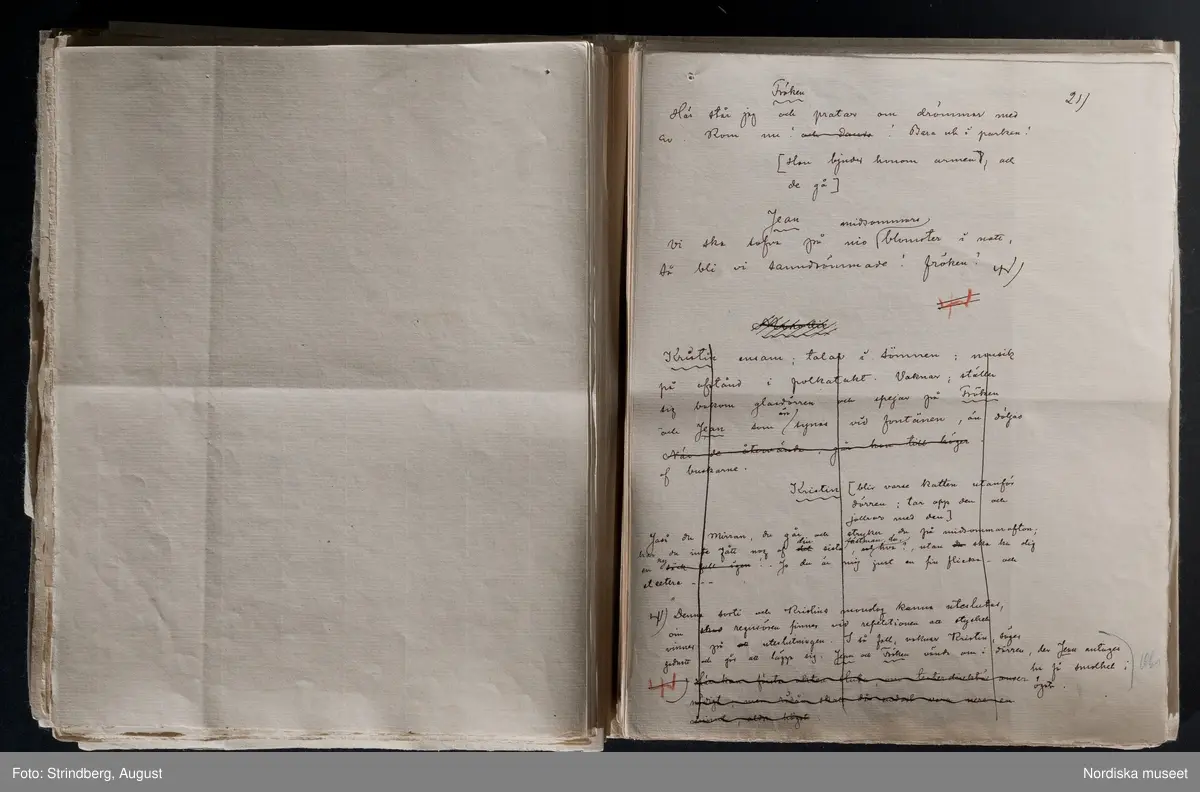 21)
Fröken
Här står jag och pratar om drömmar med
er. Kom nu! och dansa! Bara ut i parken!
[Hon bjuder honom armen, och
de gå]
Jean
midsommars
Vi ska sofva på nio blomster i natt,
så bli vi sanndrömmade! fröken!
Kristin ensam; talar i sömnen; musik
på afstånd i polkatakt. Vaknar; ställer
sig bakom glasdörren och spejar på Fröken
och Jean som än synas vid fontänen, än döljas
När de återvända, går hon till höger.
af buskarne.
Kristin [blir varse katten utanför
dörren; tar opp den och
jollrar med den]
Jaså du Mirran, du går och stryker du på midsommarafton;
har du inte fått nog af den sista, utan ska ha dig
en ny igen! Ja du är mig just en fin flicka - och
etcetera ----
Denna sorti och Kristins monolog kunna uteslutas,
om regissören finner vid repetitionen att stycket
vinner på uteslutningen. I så fall, vaknar Kristin,
och går att lägga sig. Jean och Fröken vända om i dörren, der Jean antages
ha få smolket i
ögat.
Foto: Strindberg, August
Nordiska museet